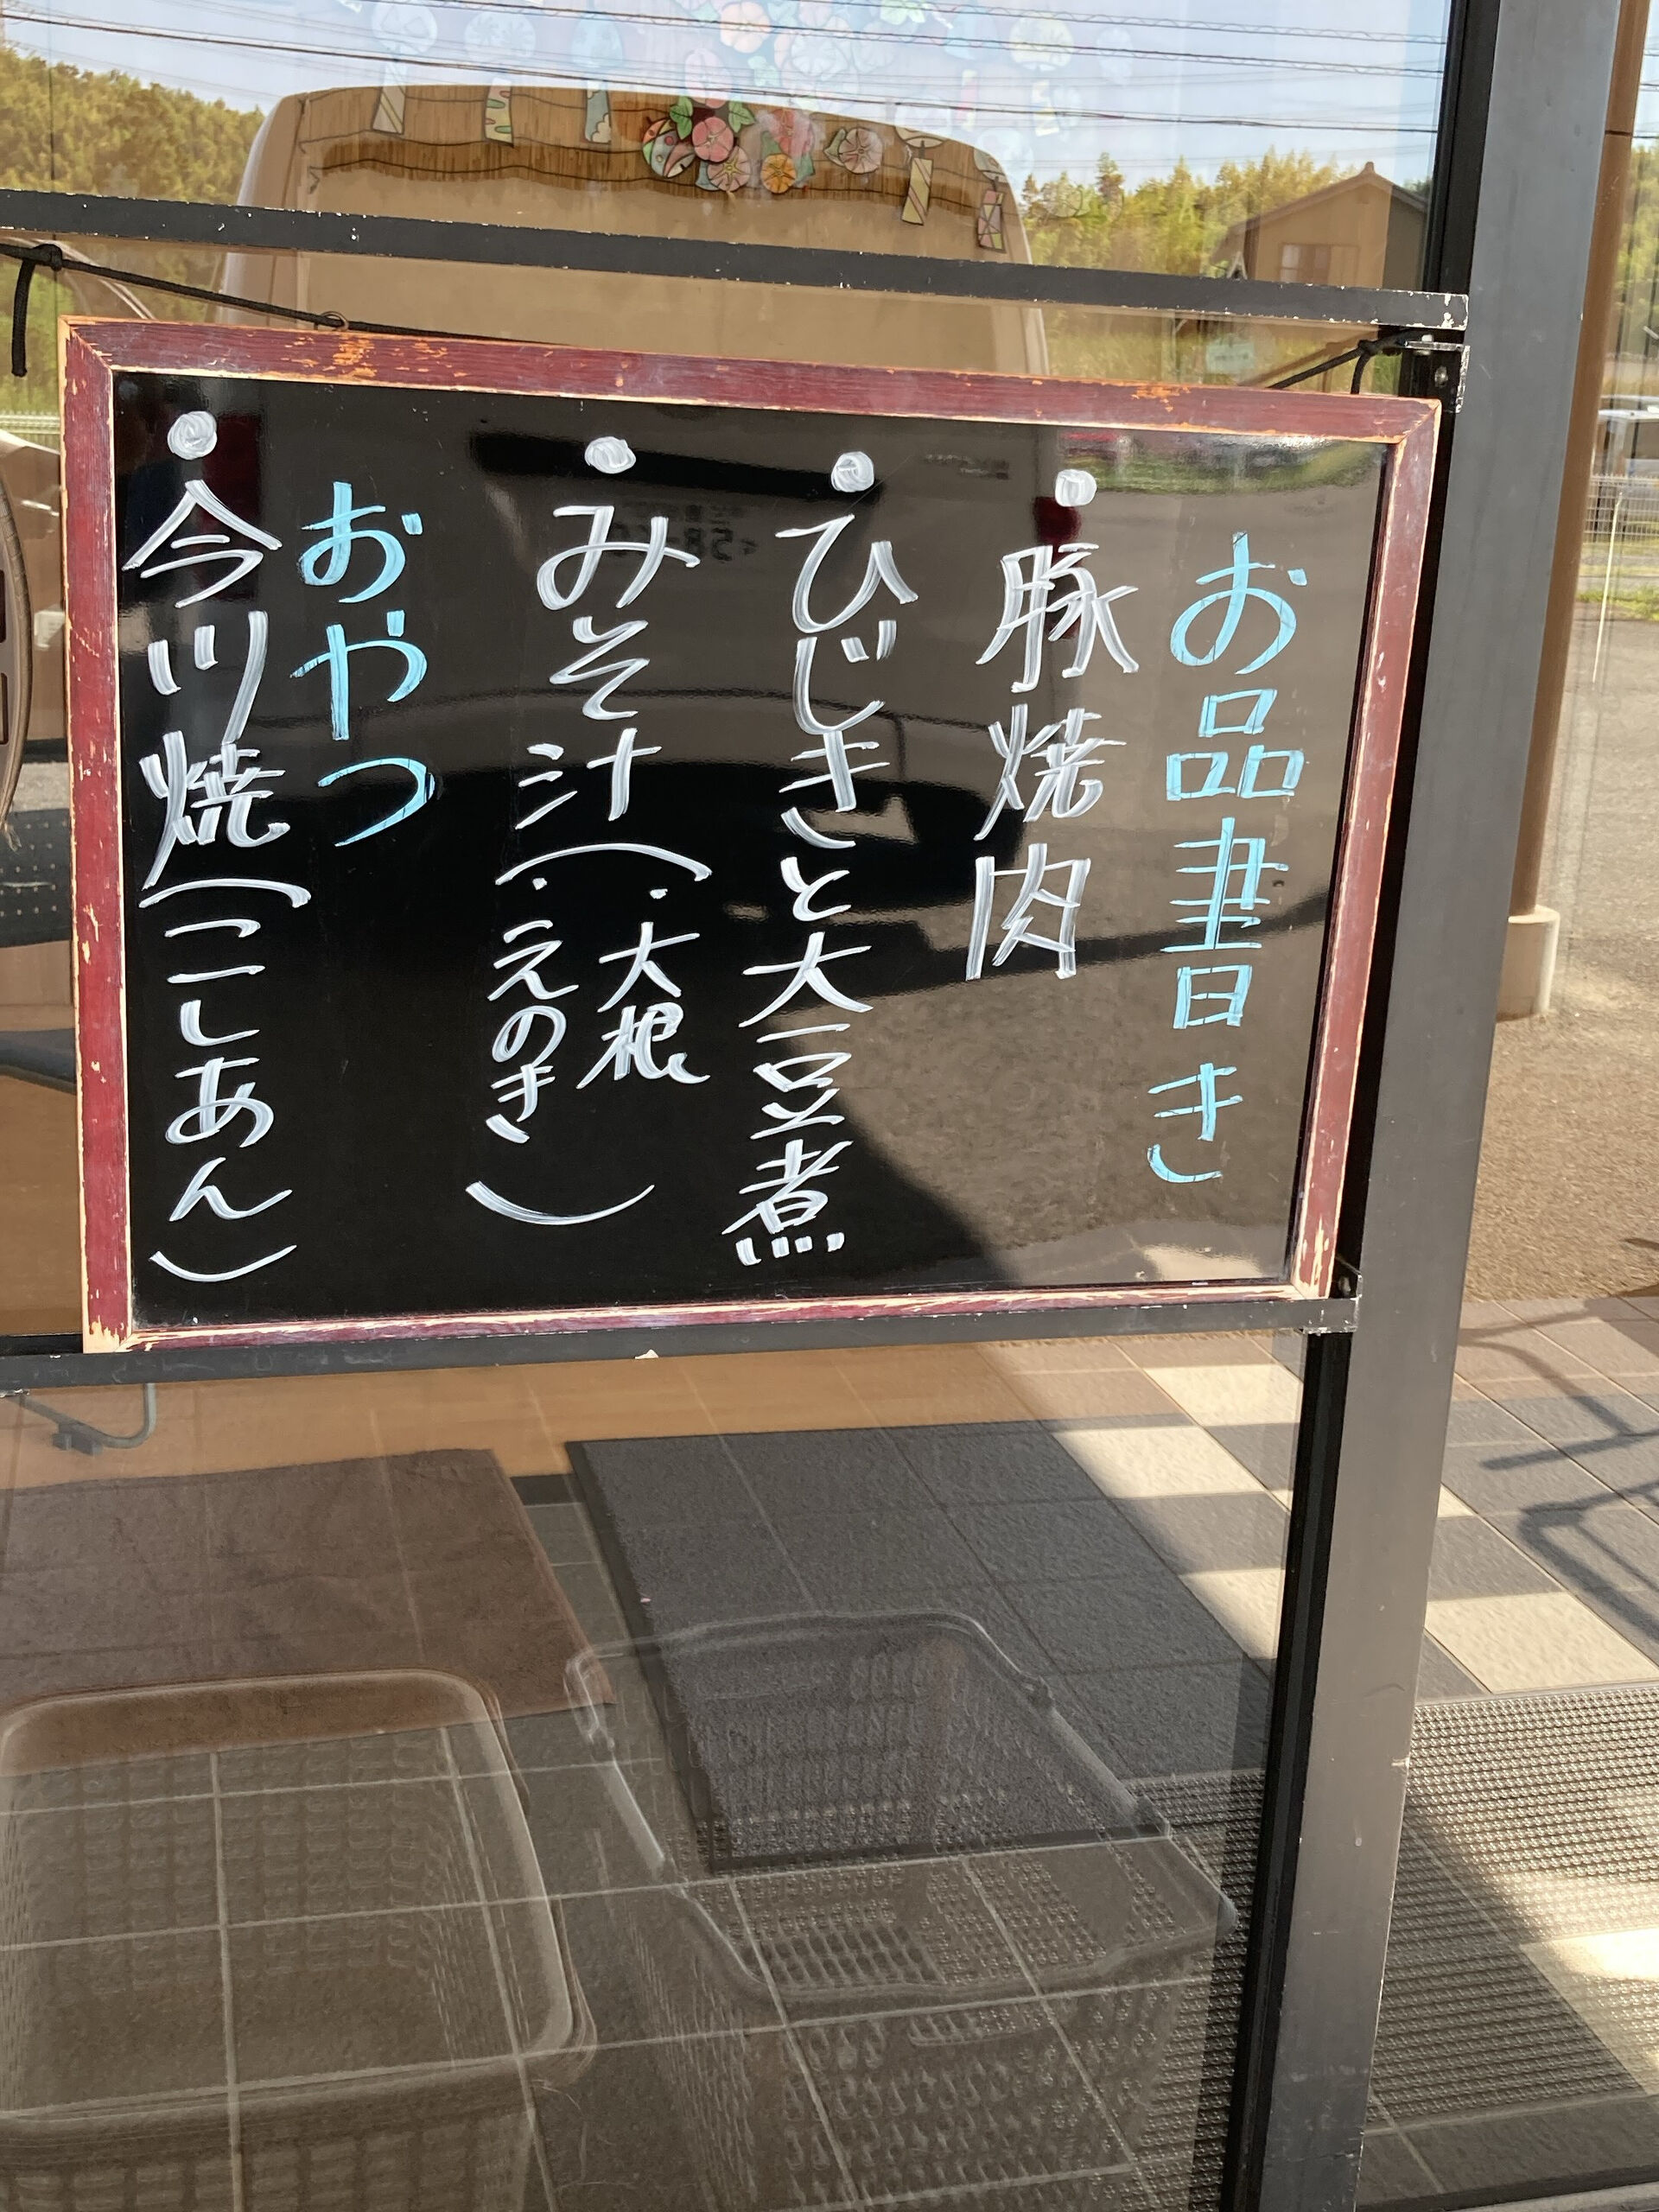 お品書き
・豚焼肉
・ひじきと大豆煮
・みそ汁(・大根
・えのき)
おやつ
・今川焼(こしあん)